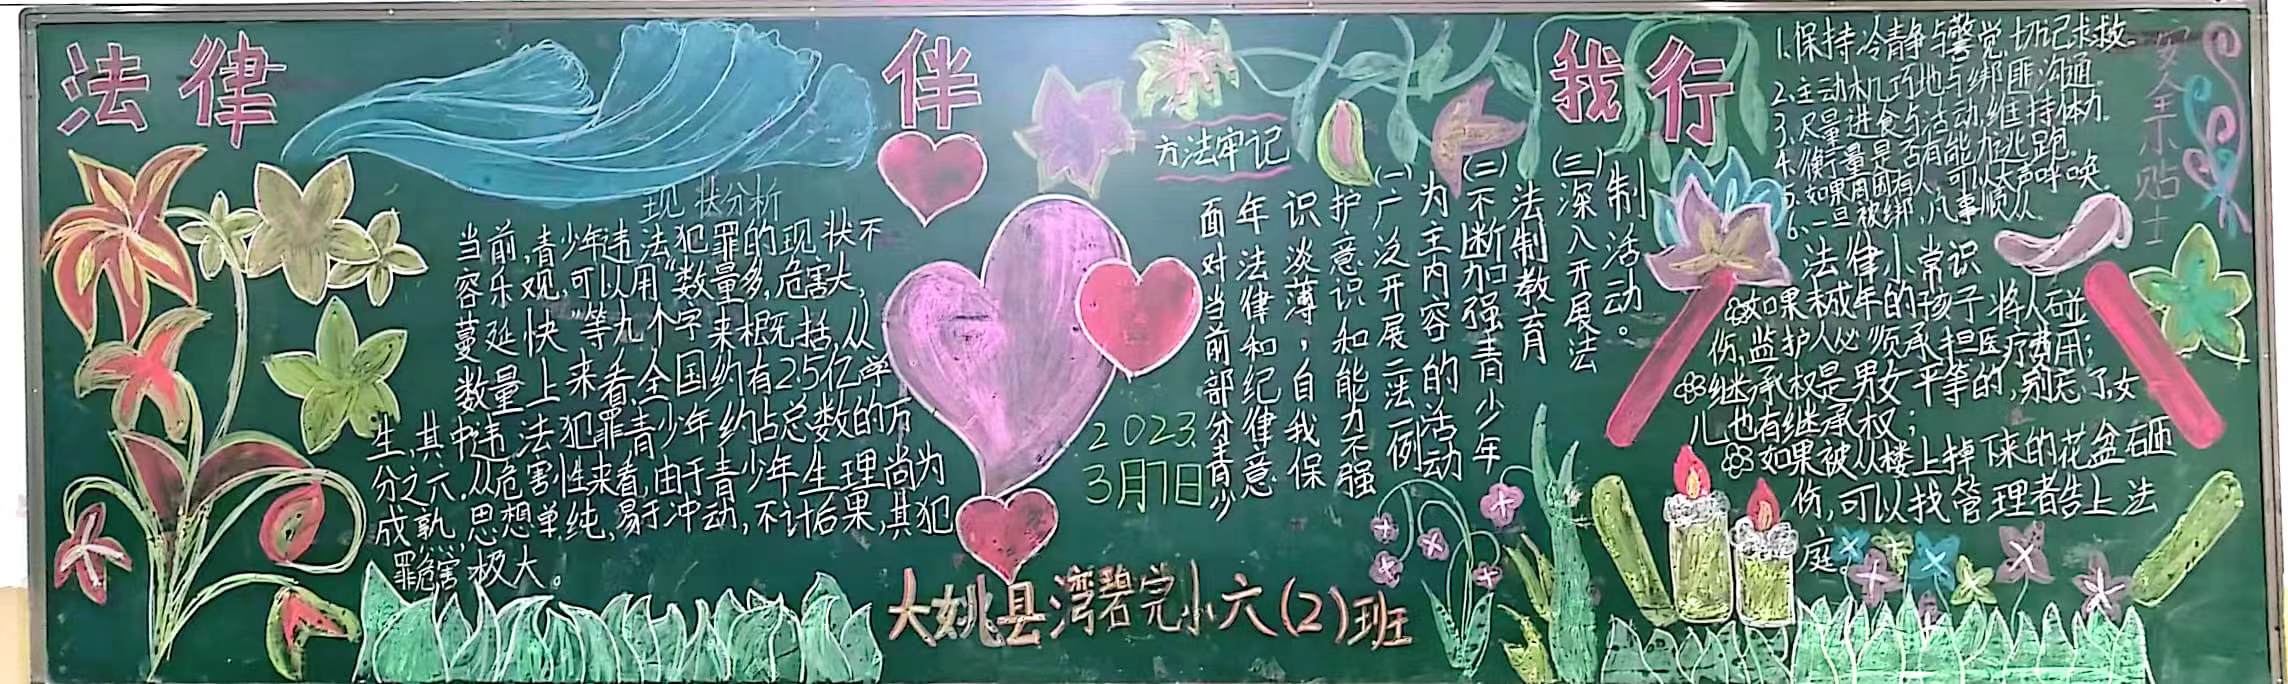 法律伴我行
现状分析
当前,青少年违法犯罪的现状不
容乐观,可以用“数量多,危害大,
蔓延快”等九个字来概括,从
数量上来看,全国约有2.5亿学
生,其中违法犯罪青少年约占总数的万
分之六.从危害性来看,由于青少年生理尚为
成熟,思想单纯,易于冲动,不计后果,其犯
罪危害极大。
方法牢记
面对当前部分青少
年法律和纪律意
识淡薄,自我保
护意识和能力不强
(一)广泛开展二法一例
为主内容的活动
(二)不断加强青少年
法制教育
(三)深入开展法
制活动。
2023.
3月7日
安全小贴士
1.保持冷静与警觉,切记求救.
2.主动机巧地与绑匪沟通.
3.尽量进食与活动,维持体力.
4.衡量是否有能力逃跑.
5.如果周围有人,可以大声呼唤.
6.一旦被绑,凡事顺从.
法律小常识
如果未成年的孩子将人碰
伤,监护人必须承担医疗费用;
继承权是男女平等的,别忘了,女
儿也有继承权;
如果被从楼上掉下来的花盆砸
伤,可以找管理者告上法
庭。
大姚县湾碧完小六(2)班